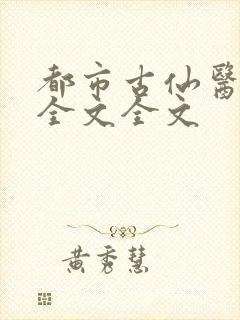 都市古仙醫
全文全文
黃秀慧